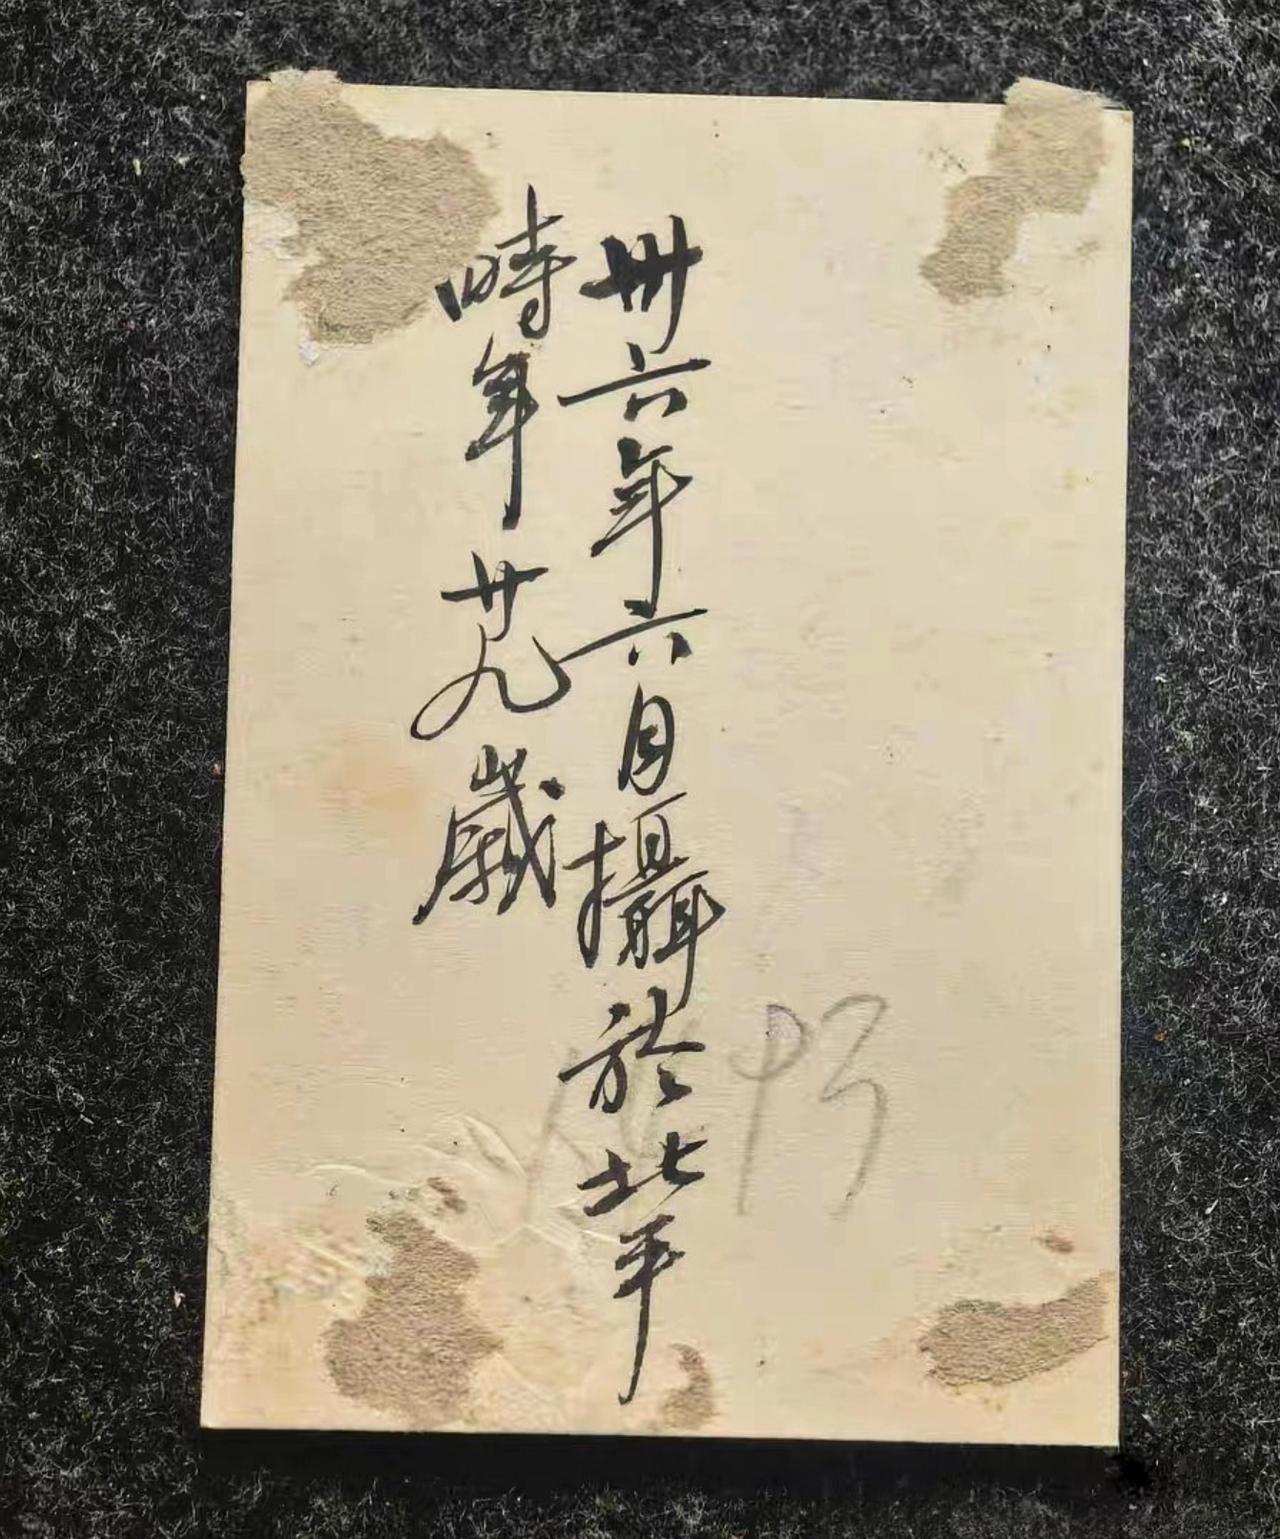 卅六年六月攝於北平
時年廿九歲